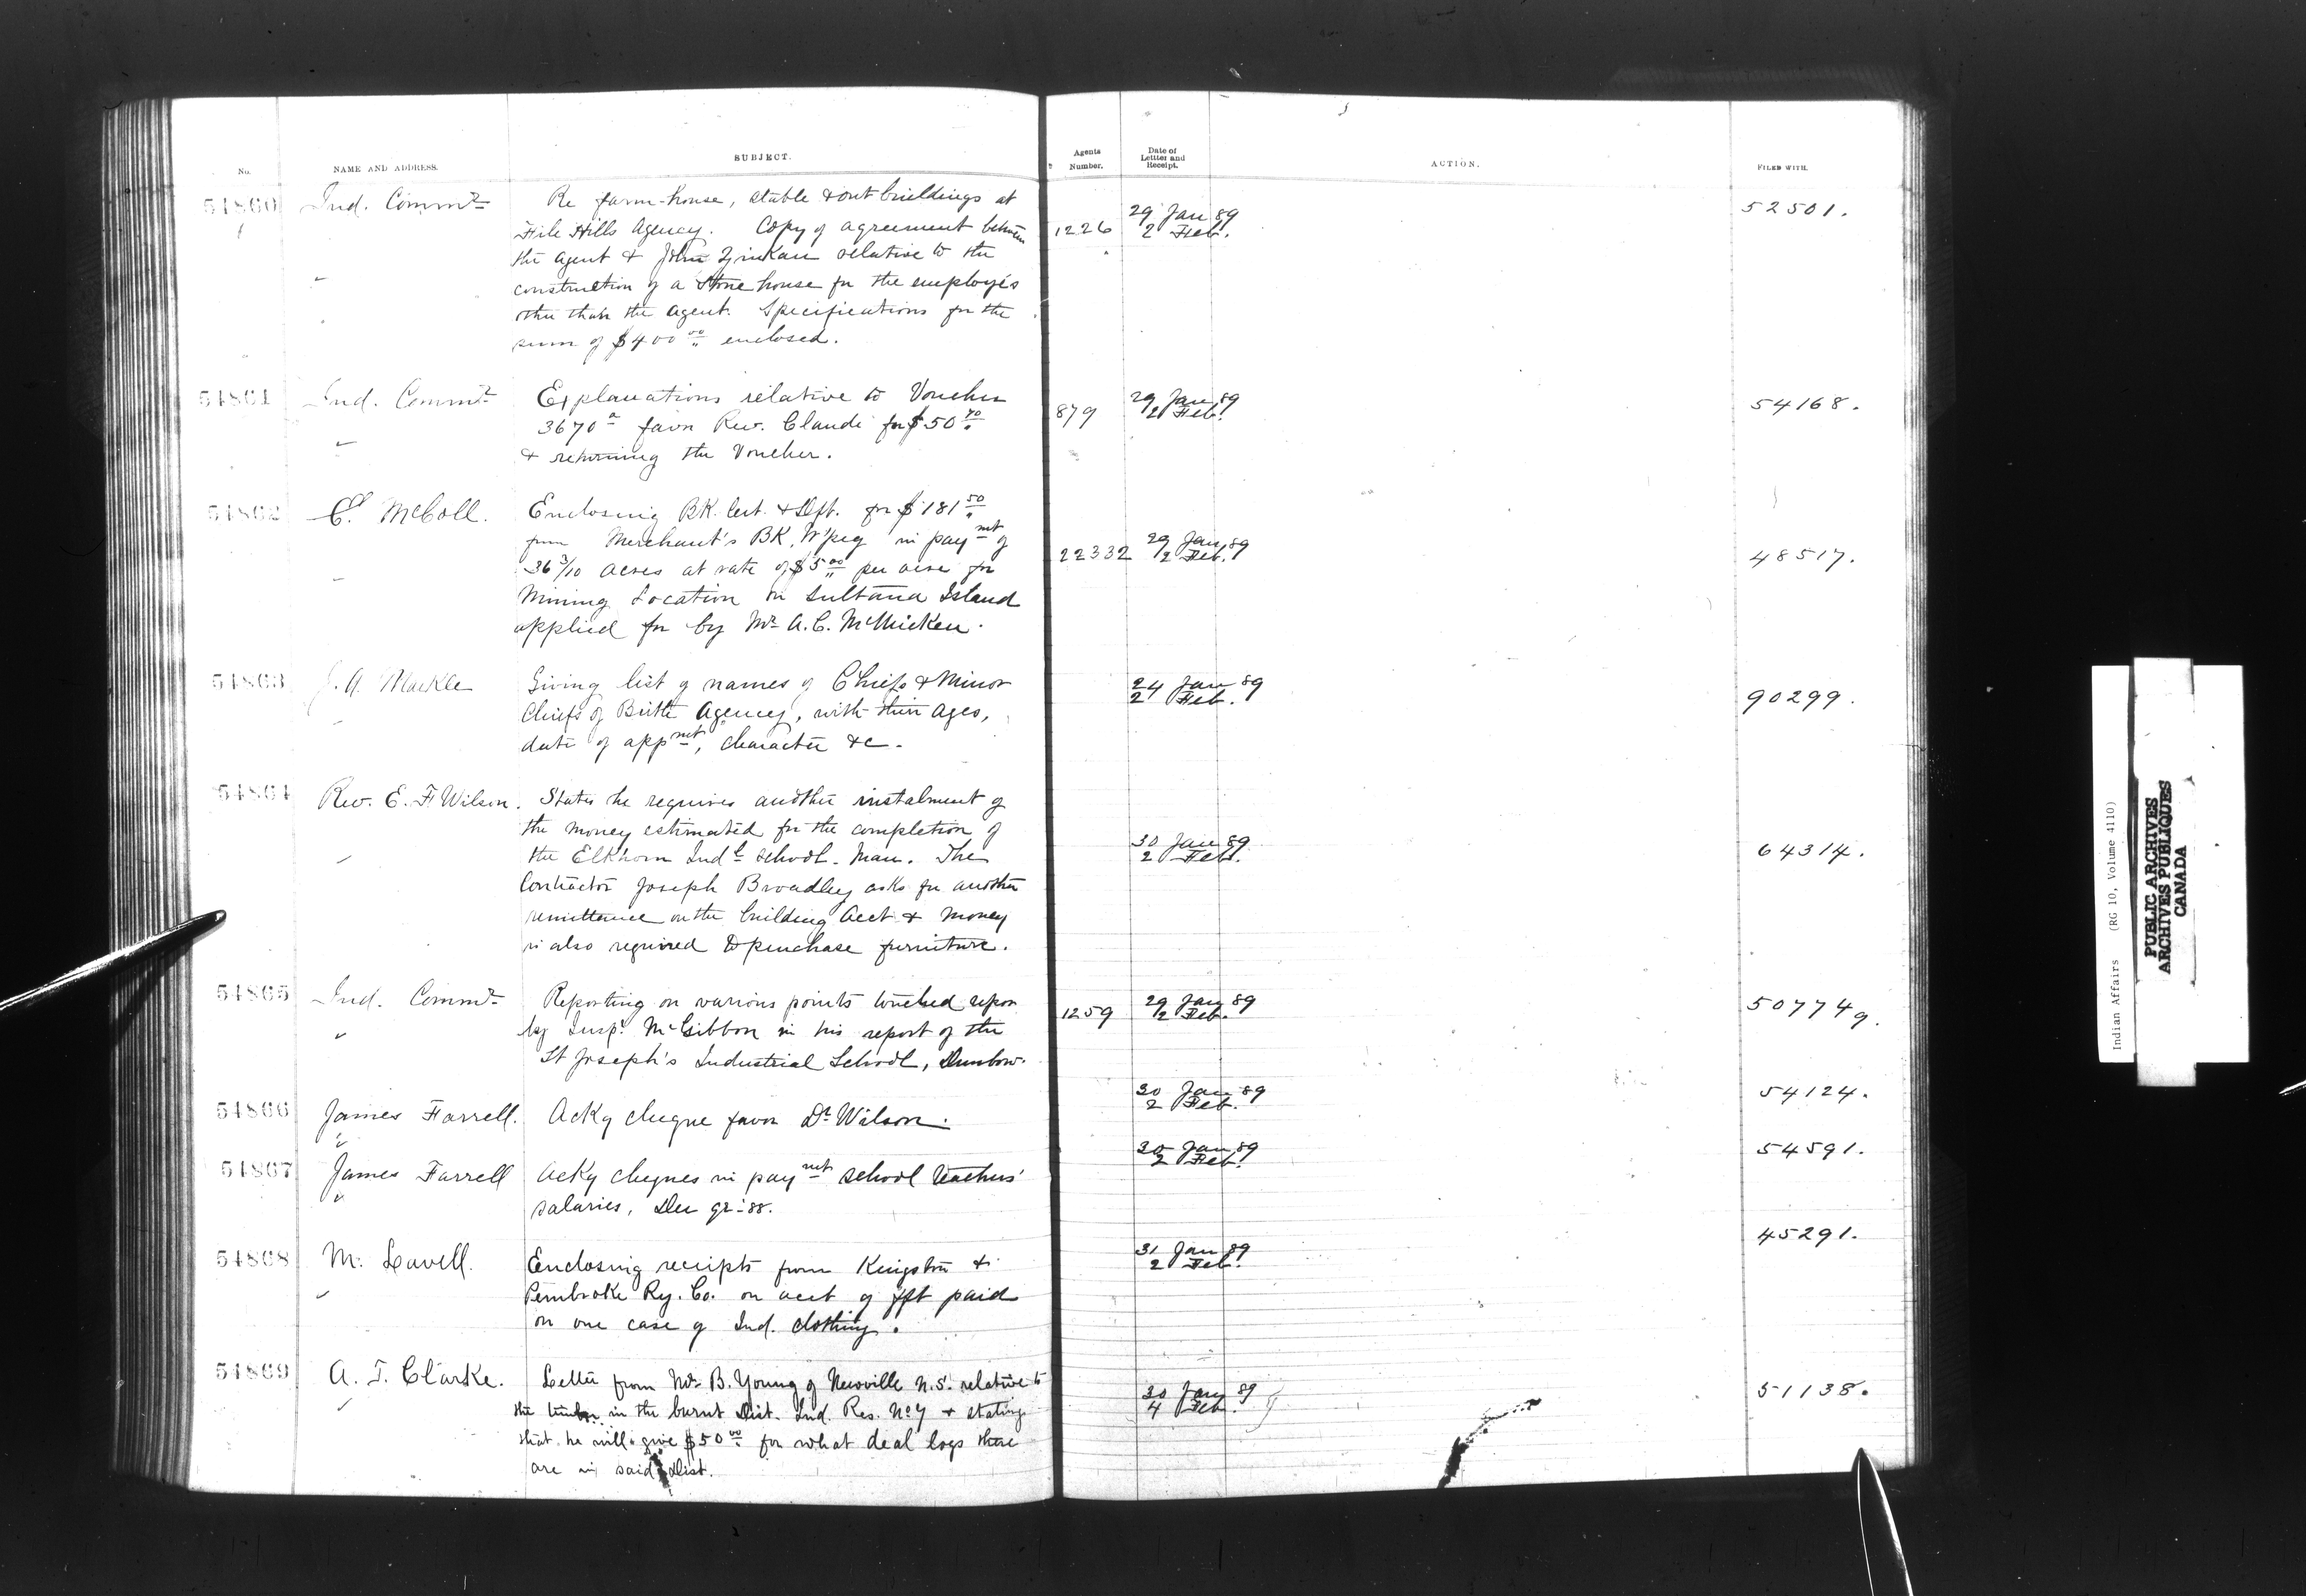 No.
NAME AND ADDRESS.
SUBJECT.
Agents Number.
Date of Letter and Receipt.
ACTION.
FILED WITH.
54860
Ind. Commr
Re farm-house, stable & out buildings at
File Hills Agency. Copy of agreement between
the Agent & John Zinkan relative to the
construction of a stone house for the employés
other than the Agent. Specifications for the
sum of $400 00 enclosed.
1226
29 Jan 89
2 Feb.
52501.
54861
Ind. Commr
Explanations relative to Voucher
3670 a favor Rev. Claude for $50 40
& returning the Voucher.
879
29 Jan 89
2 Feb.
54168.
54862
E. McColl.
Enclosing BK. Cert. & Dft. for $181 50
from Merchant's BK, W'peg in paymnt of
36 3/10 acres at rate of $5 00 per acre for
Mining Location on Sultana Island
applied for by Mr A. C. McMicken.
22332
29 Jan 89
2 Feb.
48517.
54863
J. A. Markle
Giving list of names of Chiefs & Minor
Chiefs of Birtle Agency, with their ages,
date of appmnt, character &c.
24 Jan 89
2 Feb.
90299.
54864
Rev. E. F. Wilson.
States he requires another instalment of
the money estimated for the completion of
the Elkhorn Indl School. Man. The
Contractor Joseph Broadley asks for another
remittance on the building Acct & money
is also required to purchase furniture.
30 Jan 89
2 Feb.
64314.
54865
Ind. Commr
Reporting on various points touched upon
by Inspr McGibbon in his report of the
St Joseph's Industrial School, Dunbow.
1259
29 Jan 89
2 Feb.
507749.
54866
James Farrell.
Ackg cheque favor Dr Wilson.
30 Jan 89
2 Feb.
54124.
54867
James Farrell
Ackg cheques in paymnt school teachers'
salaries, Dec qr '88.
30 Jan 89
2 Feb.
54591.
54868
M. Lavell.
Enclosing receipts from Kingston &
Pembroke Ry. Co. on acct of frt paid
on one case of Ind. clothing.
31 Jan 89
2 Feb.
45291.
54869
A. T. Clarke.
Letter from Mr B. Young of Newville N.S. relative to
the timber in the burnt Dist. Ind. Res. No 7 & stating
that he will give $50 00 for what deal logs there
are in said Dist.
30 Jan 89
4 Feb.
51138.
Indian Affairs (RG 10, Volume 4110)
PUBLIC ARCHIVES
ARCHIVES PUBLIQUES
CANADA